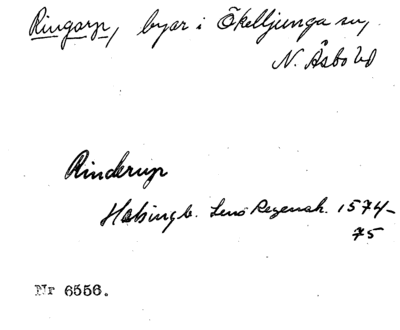 Ringarp, byar i Ökelljunga sn,
N. Åsbo hd
Rinderup
Helsingb. Lens Regensk. 1574-
75
Nr 6556.